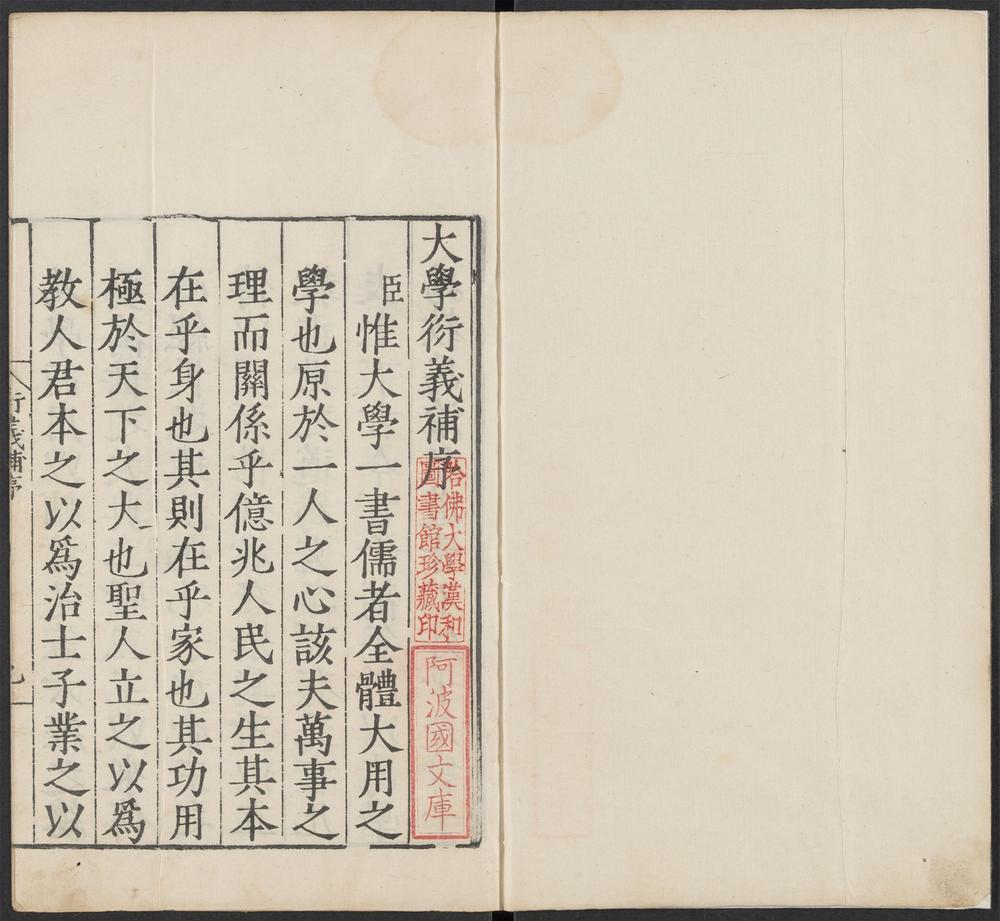 大學衍義補序
臣惟大學一書儒者全體大用之
學也原於一人之心該夫萬事之
理而關係乎億兆人民之生其本
在乎身也其則在乎家也其功用
極於天下之大也聖人立之以爲
教人君本之以爲治士子業之以
哈佛大學漢和
圖書館珍藏印
阿波國文庫
衍義補序